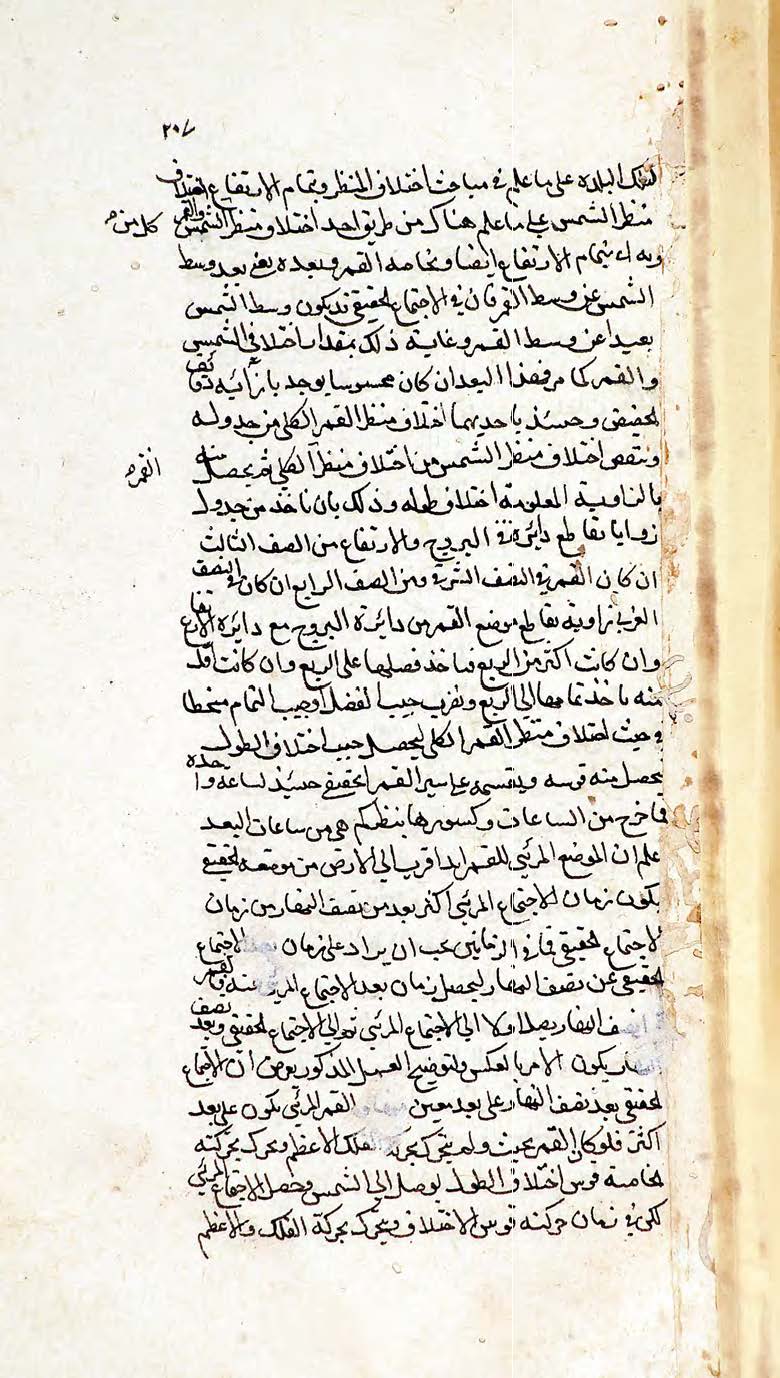 ٢٠٧
لتلك البلدة على ما علم في مباحث اختلاف المنظر وبتمام الارتفاع اختلاف
منظر الشمس على ما علم هناك من طريق اخذ اختلاف منظر الشمس والقمر
كل من
وبه اى بتمام الارتفاع ايضا وبخاصة القمر وبعده يعنى بعد وسط
الشمس عن وسط القمر فان في الاجتماع الحقيقى قد يكون وسط الشمس
بعيدا عن وسط القمر وغاية ذلك بمقدار اختلافى الشمس
والقمر كما مر فهذا البعد ان كان محسوسا يوجد بازائه دقائق
الحقيقى وحينئذ باحديهما اختلاف منظر القمر الكلى من جدوله
وينقص اختلاف منظر الشمس من اختلاف منظر الكلى ثم يحصل منه
القمر
بالزاوية المعلومة اختلاف طوله وذلك بان ناخذ من جدول
زوايا تقاطع دايرتى البروج والارتفاع من الصف الثالث
ان كان القمر في النصف الشرقى ومن الصف الرابع ان كان في النصف
الغربى زاوية تقاطع موضع القمر من دائرة البروج مع دايرة الارتفاع
وان كانت اكثر من الربع فياخذ فصلها على الربع وان كانت اقل
منه ياخذ تمامها الى الربع ويضرب جيب الفضل او جيب التمام منحطا
في جيب اختلاف منظر القمر الكلى ليحصل جيب اختلاف الطول
يحصل منه قوسه ويقسمه على سير القمر الحقيقى حينئذ لساعة واحدة
فما خرج من الساعات وكسورها ينظركم هي من ساعات البعد
علم ان الموضع المرئى للقمر ابدا اقرب الى الارض من موقعه الحقيقى
يكون زمان الاجتماع المرئى اكثر بعد من نصف النهار من زمان
الاجتماع الحقيقى فان في الزمانين يجب ان يراد على زمان الاجتماع
الحقيقى عن نصف النهار ليحصل زمان بعد الاجتماع المرئى عنه فالقمر
نصف النهار يصل اولا الى الاجتماع المرئى ثم الى الاجتماع الحقيقى وبعد نصف
النهار يكون الامر بالعكس ولتوضيح العمل المذكور يفرض ان الاجتماع
الحقيقى بعد نصف النهار على بعد معين القمر المرئى يكون على بعد
اكثر فلو كان القمر بحيث ولم يتحرك بحركة الفلك الاعظم وتحرك بحركته
الخاصة قوس اختلاف الطول يوصل الى الشمس وحصل الاجتماع المرئى
لكن في زمان حركته قوس الاختلاف ويتحرك بحركة الفلك والاعظم